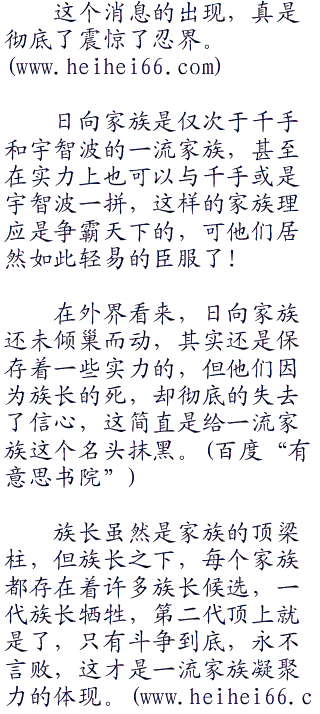 这个消息的出现，真是
彻底了震惊了忍界。
(www.heihei66.com)
日向家族是仅次于千手
和宇智波的一流家族，甚至
在实力上也可以与千手或是
宇智波一拼，这样的家族理
应是争霸天下的，可他们居
然如此轻易的臣服了！
在外界看来，日向家族
还未倾巢而动，其实还是保
存着一些实力的，但他们因
为族长的死，却彻底的失去
了信心，这简直是给一流家
族这个名头抹黑。(百度“有
意思书院”)
族长虽然是家族的顶梁
柱，但族长之下，每个家族
都存在着许多族长候选，一
代族长牺牲，第二代顶上就
是了，只有斗争到底，永不
言败，这才是一流家族凝聚
力的体现。(www.heihei66.c